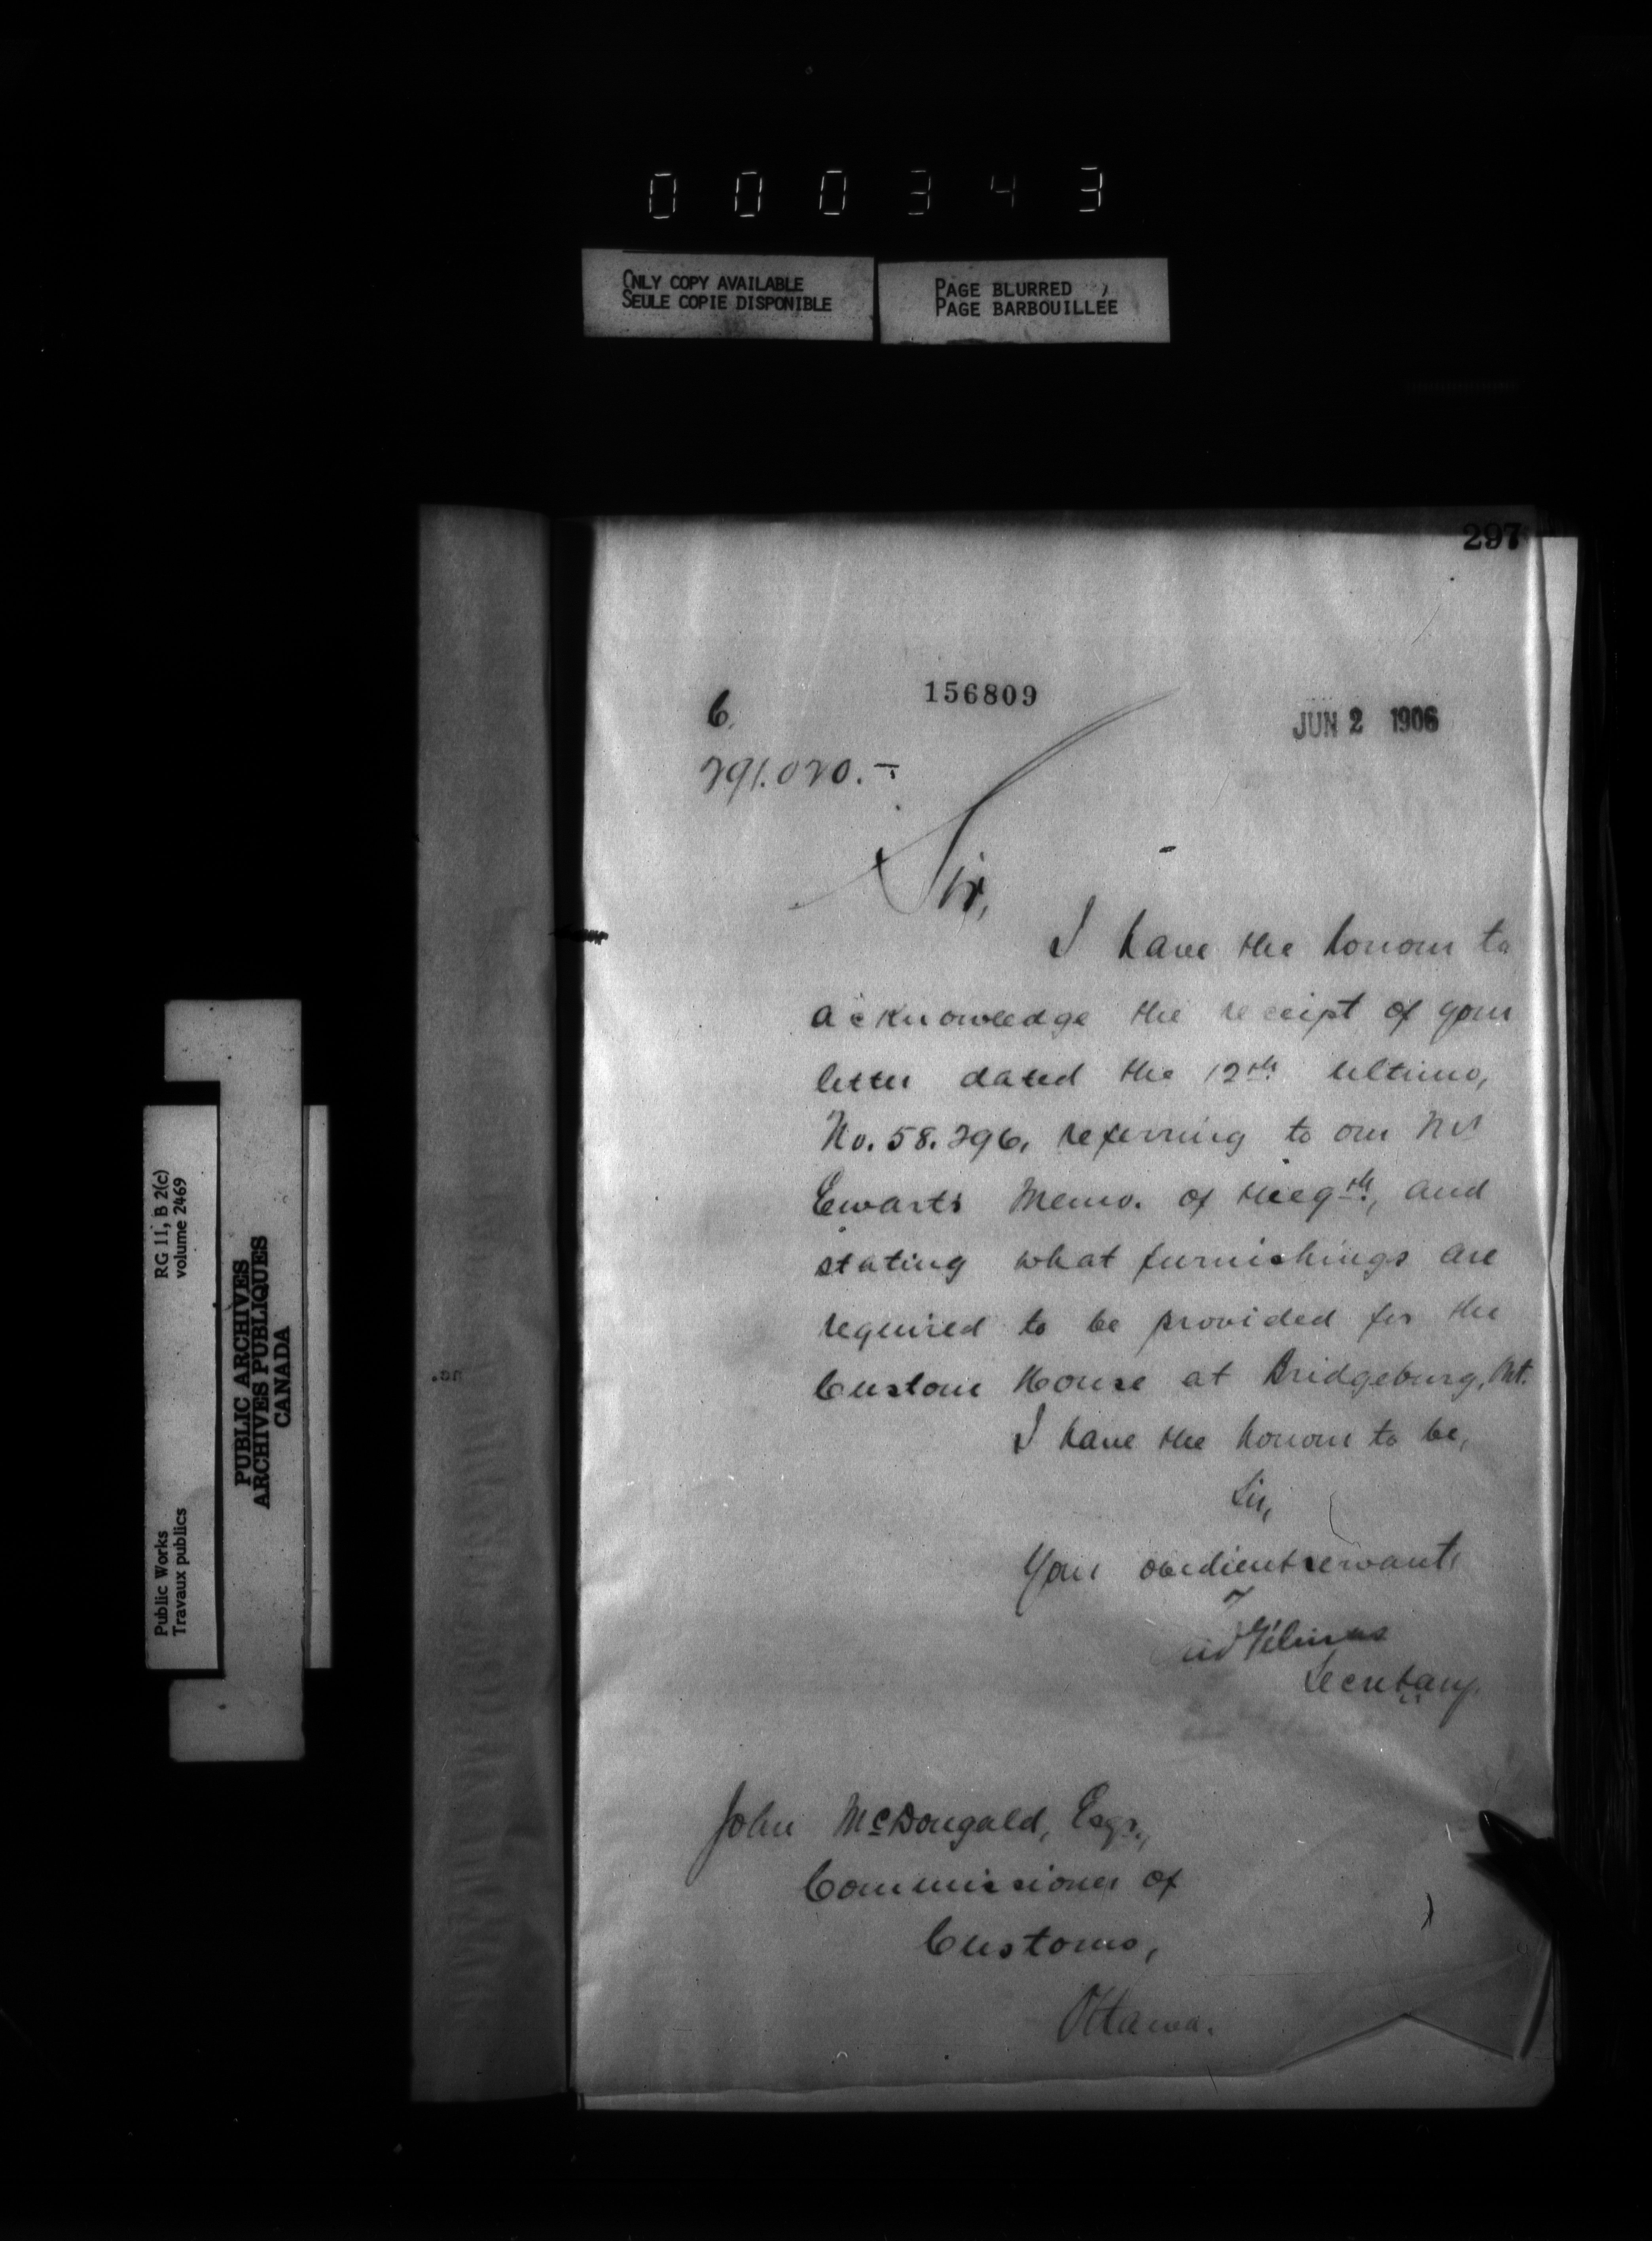 000343
ONLY COPY AVAILABLE
SEULE COPIE DISPONIBLE
PAGE BLURRED
PAGE BARBOUILLEE
297
6.
156809
JUN 2 1906
291.020.-
Sir,
I have the honour to
acknowledge the receipt of your
letter dated the 12th ultimo,
No. 58.296, referring to our Mr
Ewarts Memo. of the 9th, and
stating what furnishings are
required to be provided for the
Custom House at Bridgeburg, Ont.
I have the honour to be,
Sir,
Your obedient servant,
Gélinas
Secretary.
John McDougald, Esqr.,
Commissioner of
Customs,
Ottawa.
RG 11, B 2(c)
volume 2469
PUBLIC ARCHIVES
ARCHIVES PUBLIQUES
CANADA
Public Works
Travaux publics